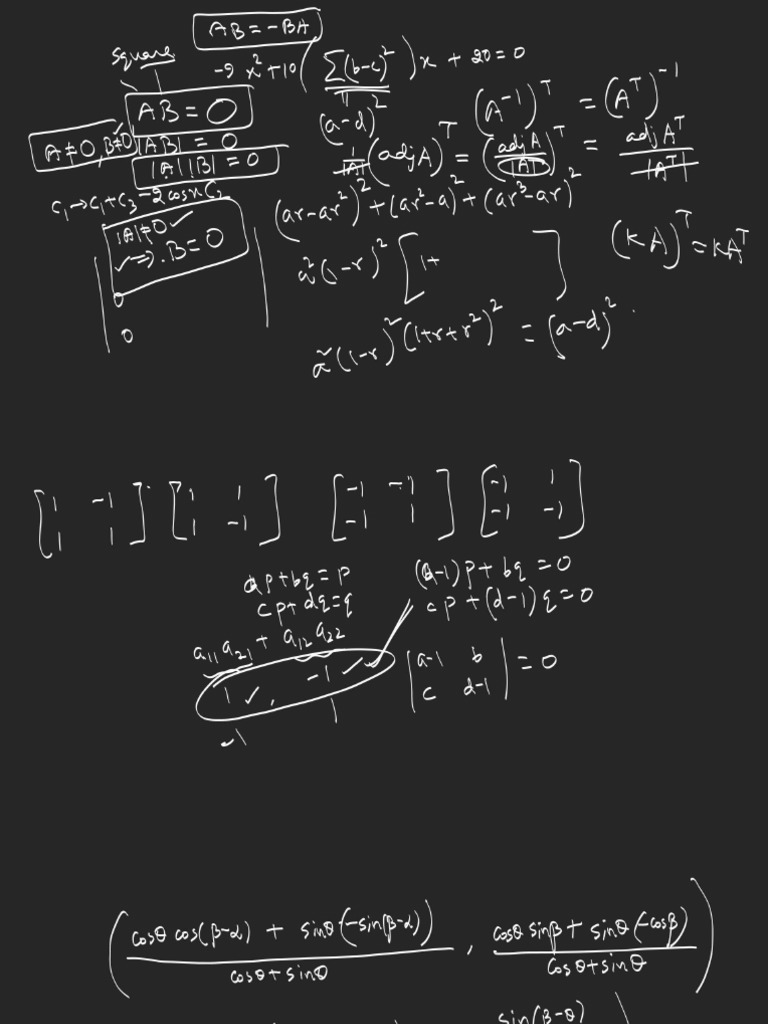 AB = -BA
square
-9x² + 10(Σ(b-c)²)x + 20 = 0
AB = 0
(a-d)²
(A⁻¹)ᵀ = (Aᵀ)⁻¹
A≠0, B≠0
|AB| = 0
1/|A| (adjA)ᵀ = (adjA/|A|)ᵀ = adjAᵀ/|Aᵀ|
|A||B| = 0
C₁→C₁+C₃-2cosxC₂
(ar-ar²)² + (ar²-a)² + (ar³-ar)²
|A|≠0 ✓
✓ ⇒ .B = 0
(KA)ᵀ = KAᵀ
a²(1-r)² [1+ ]
0
0
a²(1-r)²(1+r+r²)² = (a-d)².
[1 -1] [1 1] [-1 -1] [-1 1]
[1 1] [1 -1] [-1 1] [-1 -1]
ap+bq=p
(a-1)p+bq=0
cp+dq=q
cp+(d-1)q=0
a₁₁a₂₁ + a₁₂a₂₂
|a-1 b|
|c d-1| = 0
1 ✓, -1 ✓✓
-1 1
(cosθ cos(β-α) + sinθ(-sin(β-α)) / cosθ+sinθ , cosθ sinβ + sinθ(-cosβ) / cosθ+sinθ)
sin(β-θ)